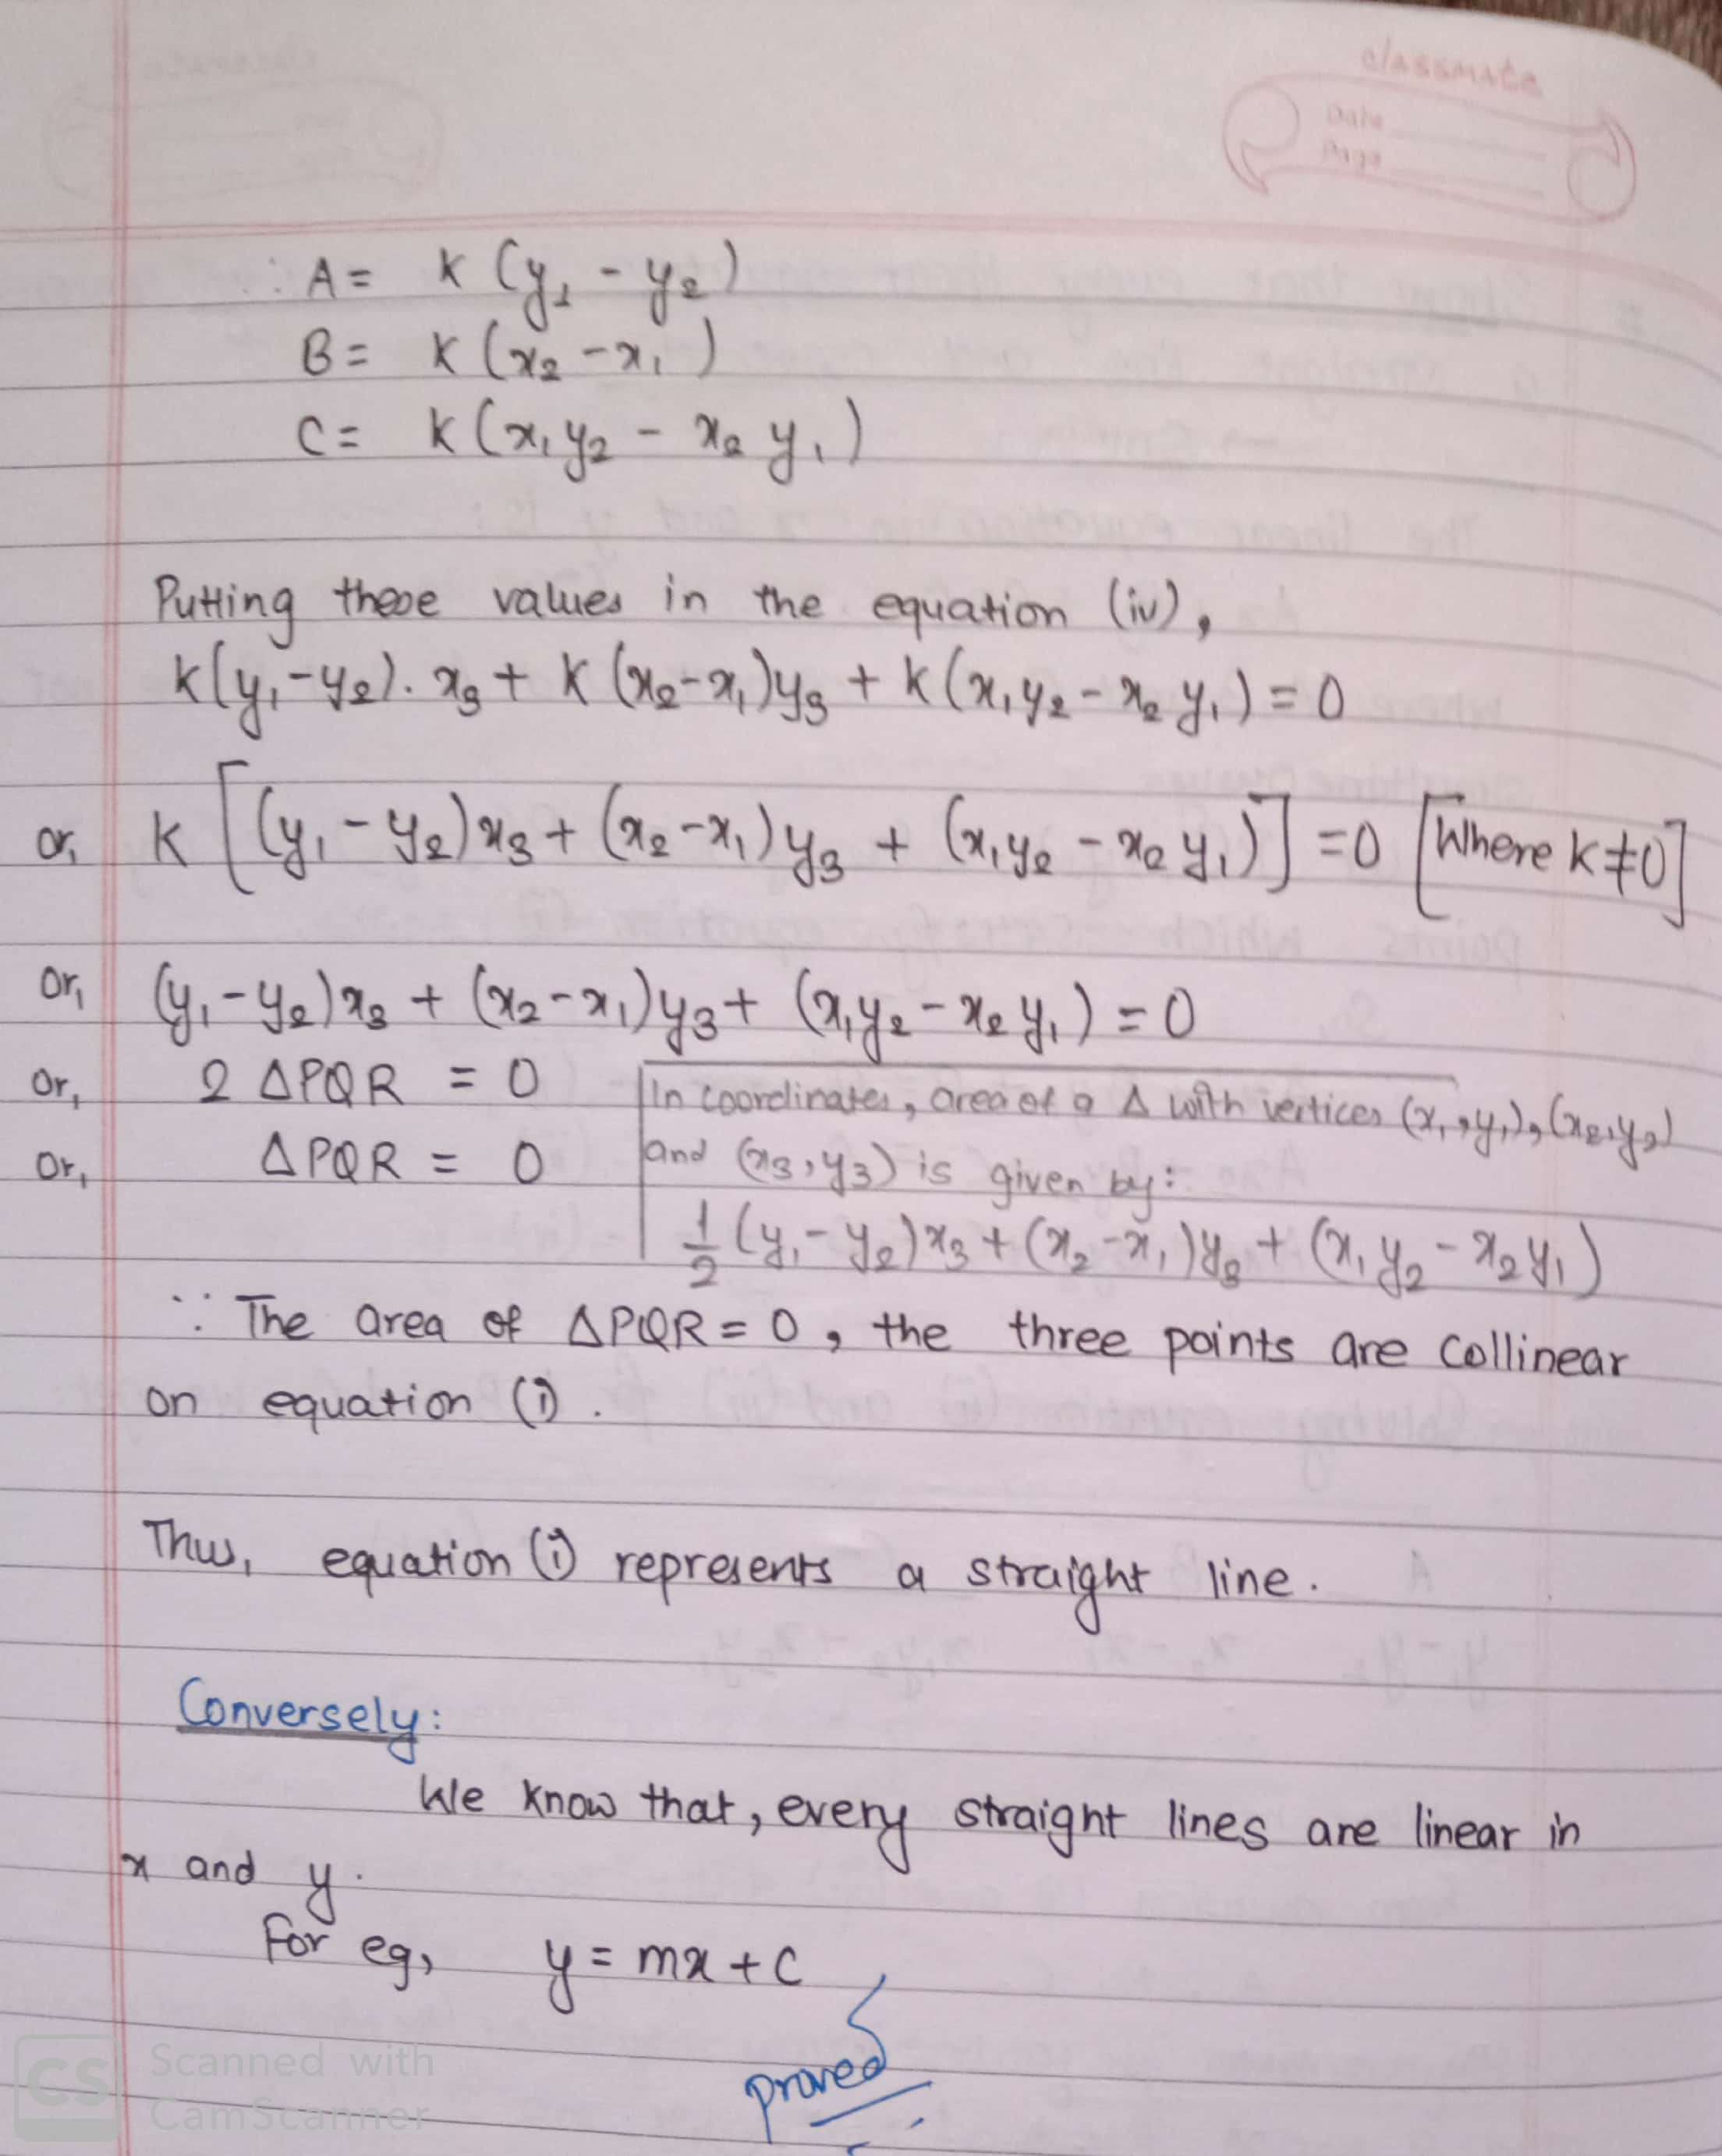 classmate
Date
Page
∴ A = K (y₁ - y₂)
B = K (x₂ - x₁)
C = K (x₁y₂ - x₂y₁)
Putting these values in the equation (iv),
K(y₁-y₂). x₃ + K (x₂-x₁)y₃ + K (x₁y₂ - x₂y₁) = 0
or, K [(y₁-y₂)x₃ + (x₂-x₁)y₃ + (x₁y₂ - x₂y₁)] = 0 [Where K≠0]
or, (y₁-y₂)x₃ + (x₂-x₁)y₃ + (x₁y₂ - x₂y₁) = 0
or, 2 ΔPQR = 0
In coordinates, area of a Δ with vertices (x₁,y₁), (x₂,y₂)
or, ΔPQR = 0
and (x₃,y₃) is given by:
½ (y₁-y₂)x₃ + (x₂-x₁)y₃ + (x₁y₂ - x₂y₁)
∵ The area of ΔPQR = 0, the three points are collinear
on equation (i).
Thus, equation (i) represents a straight line.
Conversely:
We know that, every straight lines are linear in
x and y.
For eg, y = mx + c
proved
CS Scanned with
CamScanner